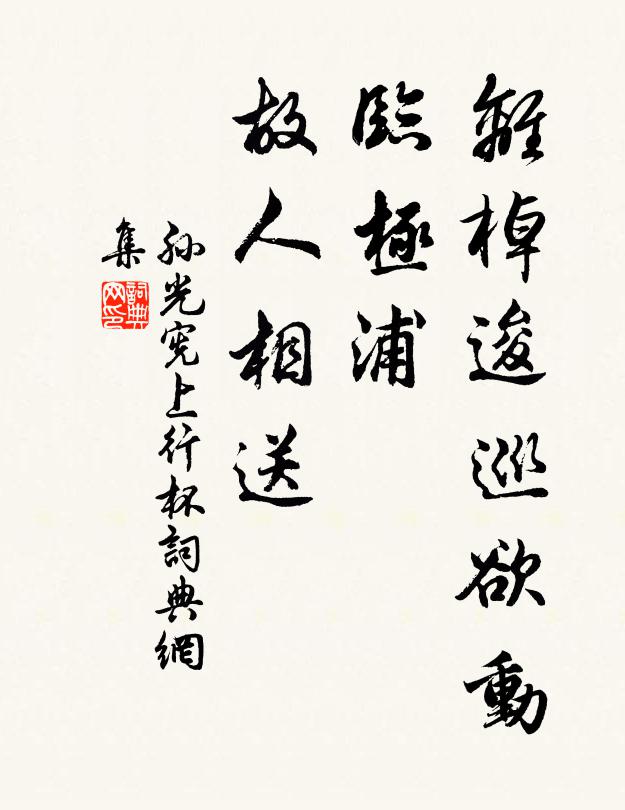 離棹逡巡欲動
臨極浦
故人相送
孫光憲上行杯詞典網
集
詞典
网印